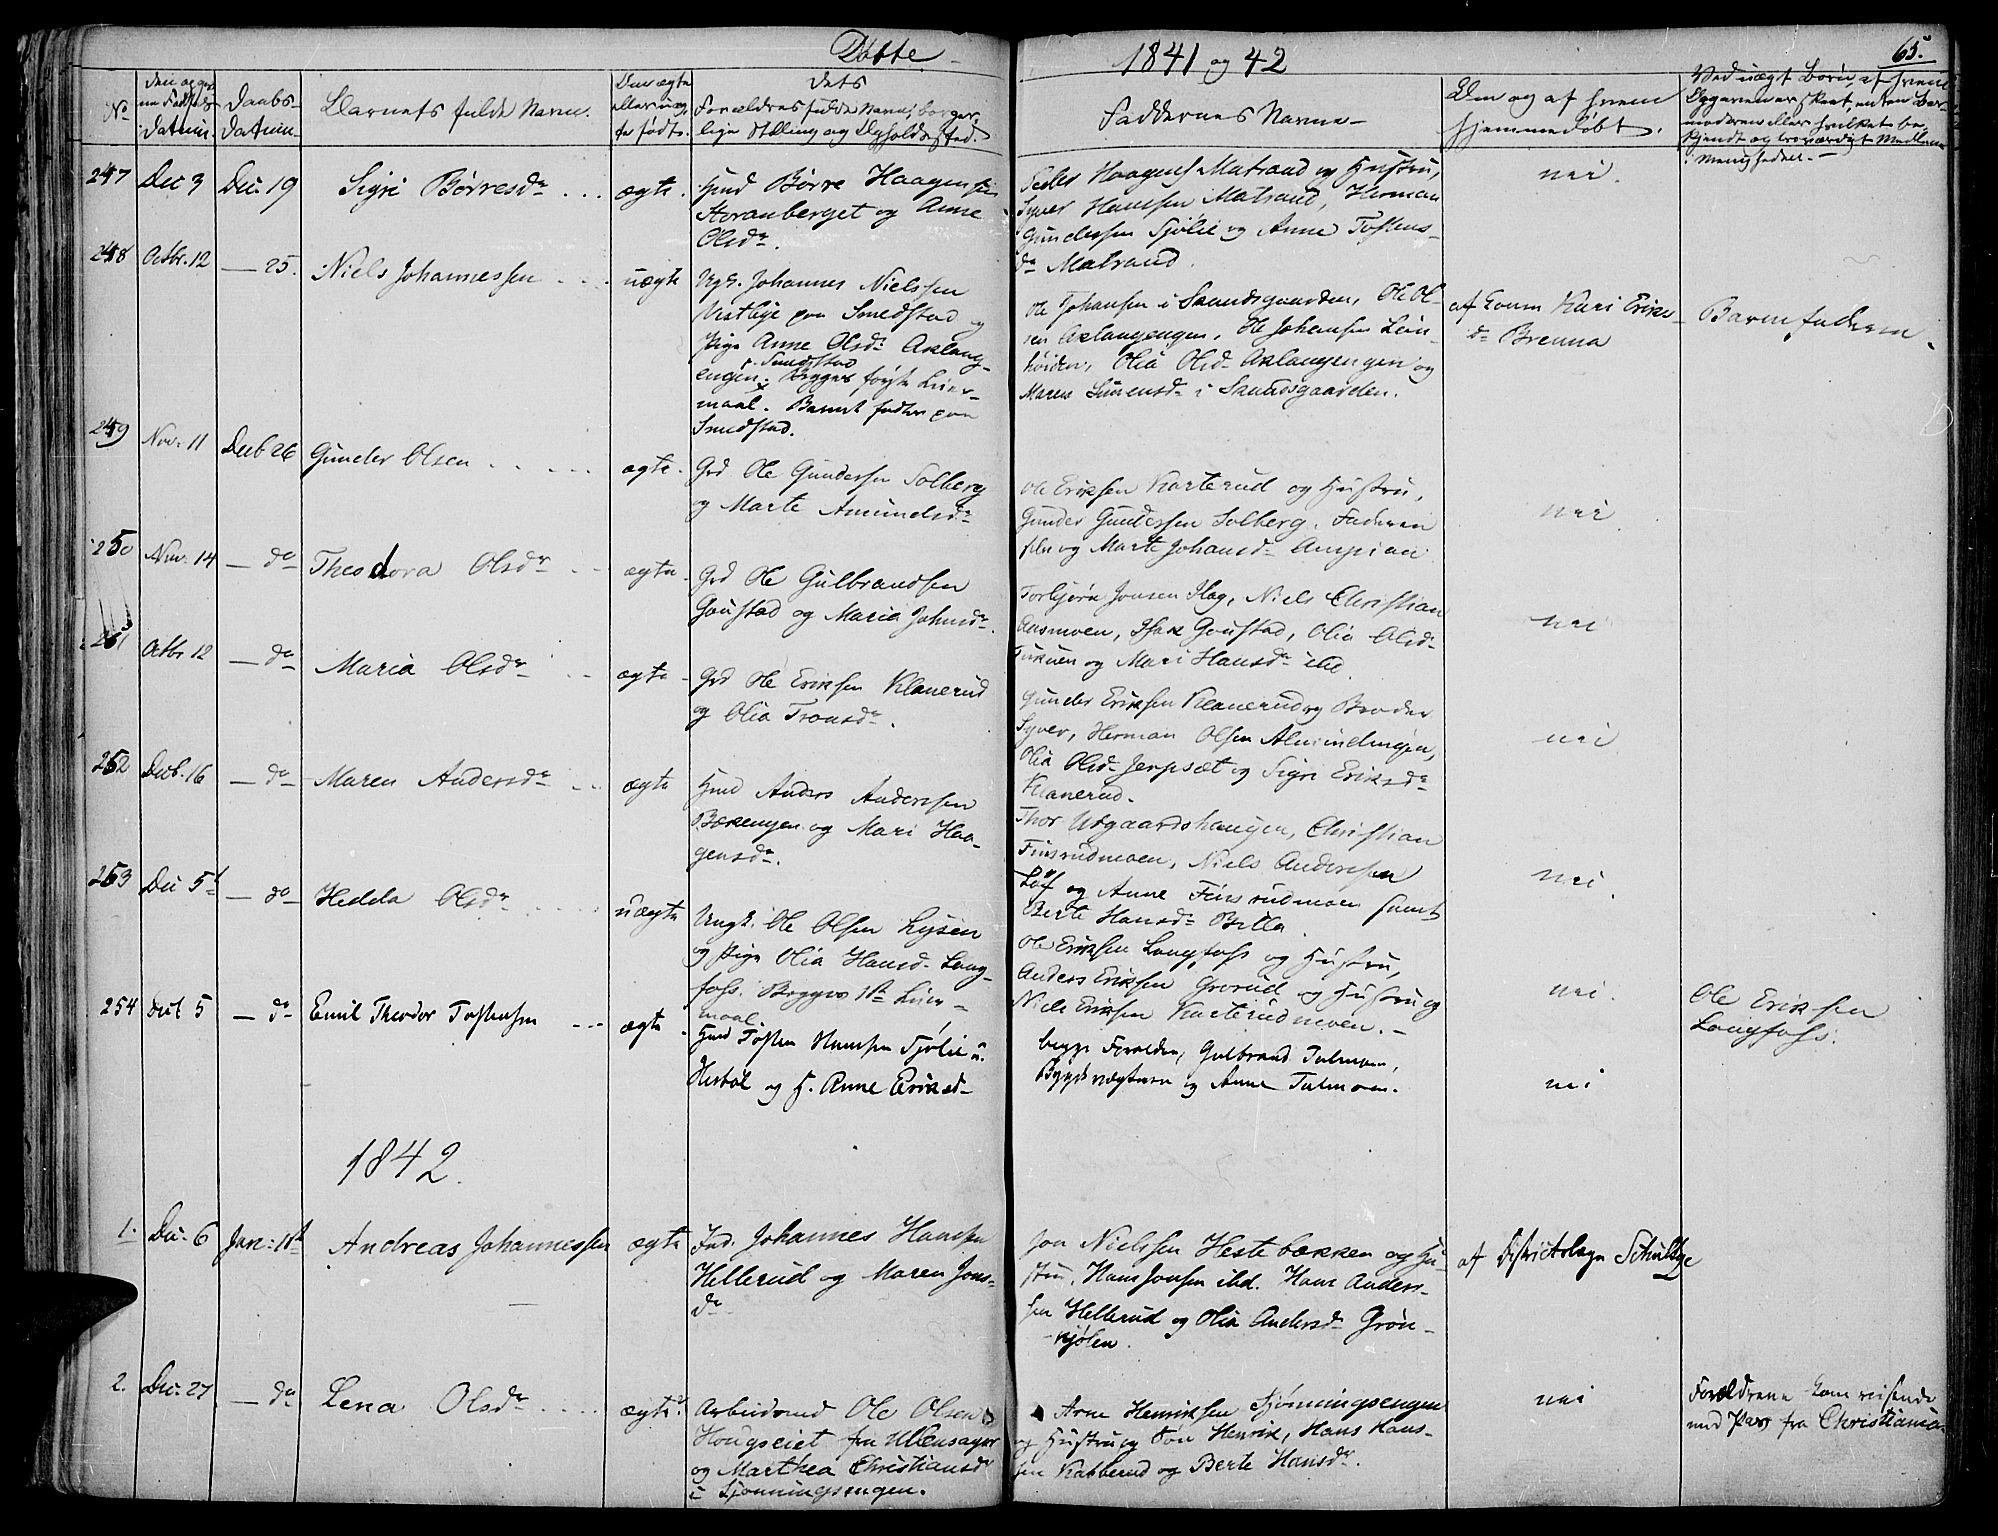 Døbte 1841 og 42 65.
No
Den og
Daabs-
Datum
Datum
Barnets fulde Navn.
Om ægte
eller uæg-
te født.
Dets
Forældres fulde Navne, borger-
lige Stilling og Opholdssted.
Faddernes Navne
Om og af hvem
hjemmedøbt.
Ved uægt. Børn, af hvem
Opgaven er skeet, enten Bar
moderen eller hvilket be-
kjendt og troværdigt Medlem
i Menigheden.
247 Dec 3 Dec. 19 Sigri Børresdr ægte.
Hmd Børre Haagensen
Storanberget og Anne
Olsdr.
Peder Haagens Matrand og Hustru,
Syver Hanssen Matrand, Herman
Gundersen Sjølie og Anne Tostens-
dr Matrand.
nei.
248 Octbr. 12 — 25. Niels Johannessen uægte
Ungk. Johannes Nielssen
Vestbye paa Smedstad og
Pige Anne Olsdr. Aslang-
engen. Smedstad
Begges første Leier-
maal. Barnet født paa
Smedstad.
Ole Johansen i Strandsgaarden, Ole Ol-
sen Aslangengen, Ole Johansen Løn-
høiden, Olia Olsd. Aslangengen og
Maren Simensd. i Strandsgaarden.
af Konen Kari Eriks-
dr Brenna
Barnefaderen.
249 Nov. 11 Decb 26 Gunder Olsen ægte.
Grd Ole Gundersen Solberg
og Marte Amundsdr
Ole Eriksen Karterud og Hustru,
Gunder Gundersen Solberg, Faderen
selv og Marte Johansd.
nei
250 Nov. 14 — do Theodora Olsdr ægte
Grd Ole Gulbrandsen
Goustad og Maria Johnsdr.
Torbjørn Jonsen Hag, Niels Christian
Aasmoen, Isak Goustad, Olia Olsd.
og Mari Hansdr ibd.
nei
251 Octbr 12 — do Maria Olsdr ægte
Grd Ole Eriksen Klanerud
og Olia Tronsdr.
Gunder Eriksen Klanerud og Broder
Syver, Herman Olsen Almindingen,
Olia Olsd. Jerpsæt og Sigri Eriksdr
Klanerud.
nei
252 Decb. 16 — do Maren Andersdr ægte
Hmd Anders Anderssen
Bækengen og Mari Haa-
gensdr.
Thor Utgaardshaugen, Christian
Finsrudmoen, Niels Anderssen
Løf og Anne Finsrudmoen samt
Berte Hansdr Billa
nei
253 Dec 5te — do Hedda Olsdr uægte
Ungk. Ole Olsen Lysen
og Pige Olia Hansd. Lang-
foss. Begges 1ste Leier-
maal.
Ole Eriksen Langfoss og Hustru,
Anders Eriksen Grorud og Hustru og
Niels Eriksen Karterudmoen.
nei.
Ole Eriksen
Langfoss.
254 Oct 5 — do Emil Theodor Tostensen ægte.
Hmd Tosten Hanssen Sjølie u.
Hestøl og H. Anne Eriksd.
begge Foreldre, Gulbrand Tulmoen,
Bygdevægteren og Anne Tulmoen.
nei
1842.
1. Dec. 6 Jan: 1ste Andreas Johannessen ægte
Ind. Johannes Hanssen
Hellerud og Maren Jons-
dr
Jon Nielssen Hestebækken og Hu-
stru, Hans Jonsen ibd. Hans Anders-
sen Hellerud og Olia Andersd. Grøn-
kjølen.
af Districtslæge Schultze
2. Dec. 27 — do Lena Olsdr ægte
Arbeidsmd Ole Olsen
Hougseiet fra Ullensager
og Marthea Christiansdr
i Sjønningsengen.
Arne Henriksen Sjønningsengen
og Hustru og Søn Henrik, Hans Hans-
sen Kabberud og Berte Hansdr.
nei
Forældrene kom reisende
med Pass fra Christiania